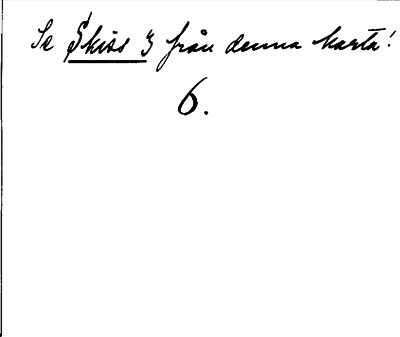 Se Skiss 3 från denna karta!
6.